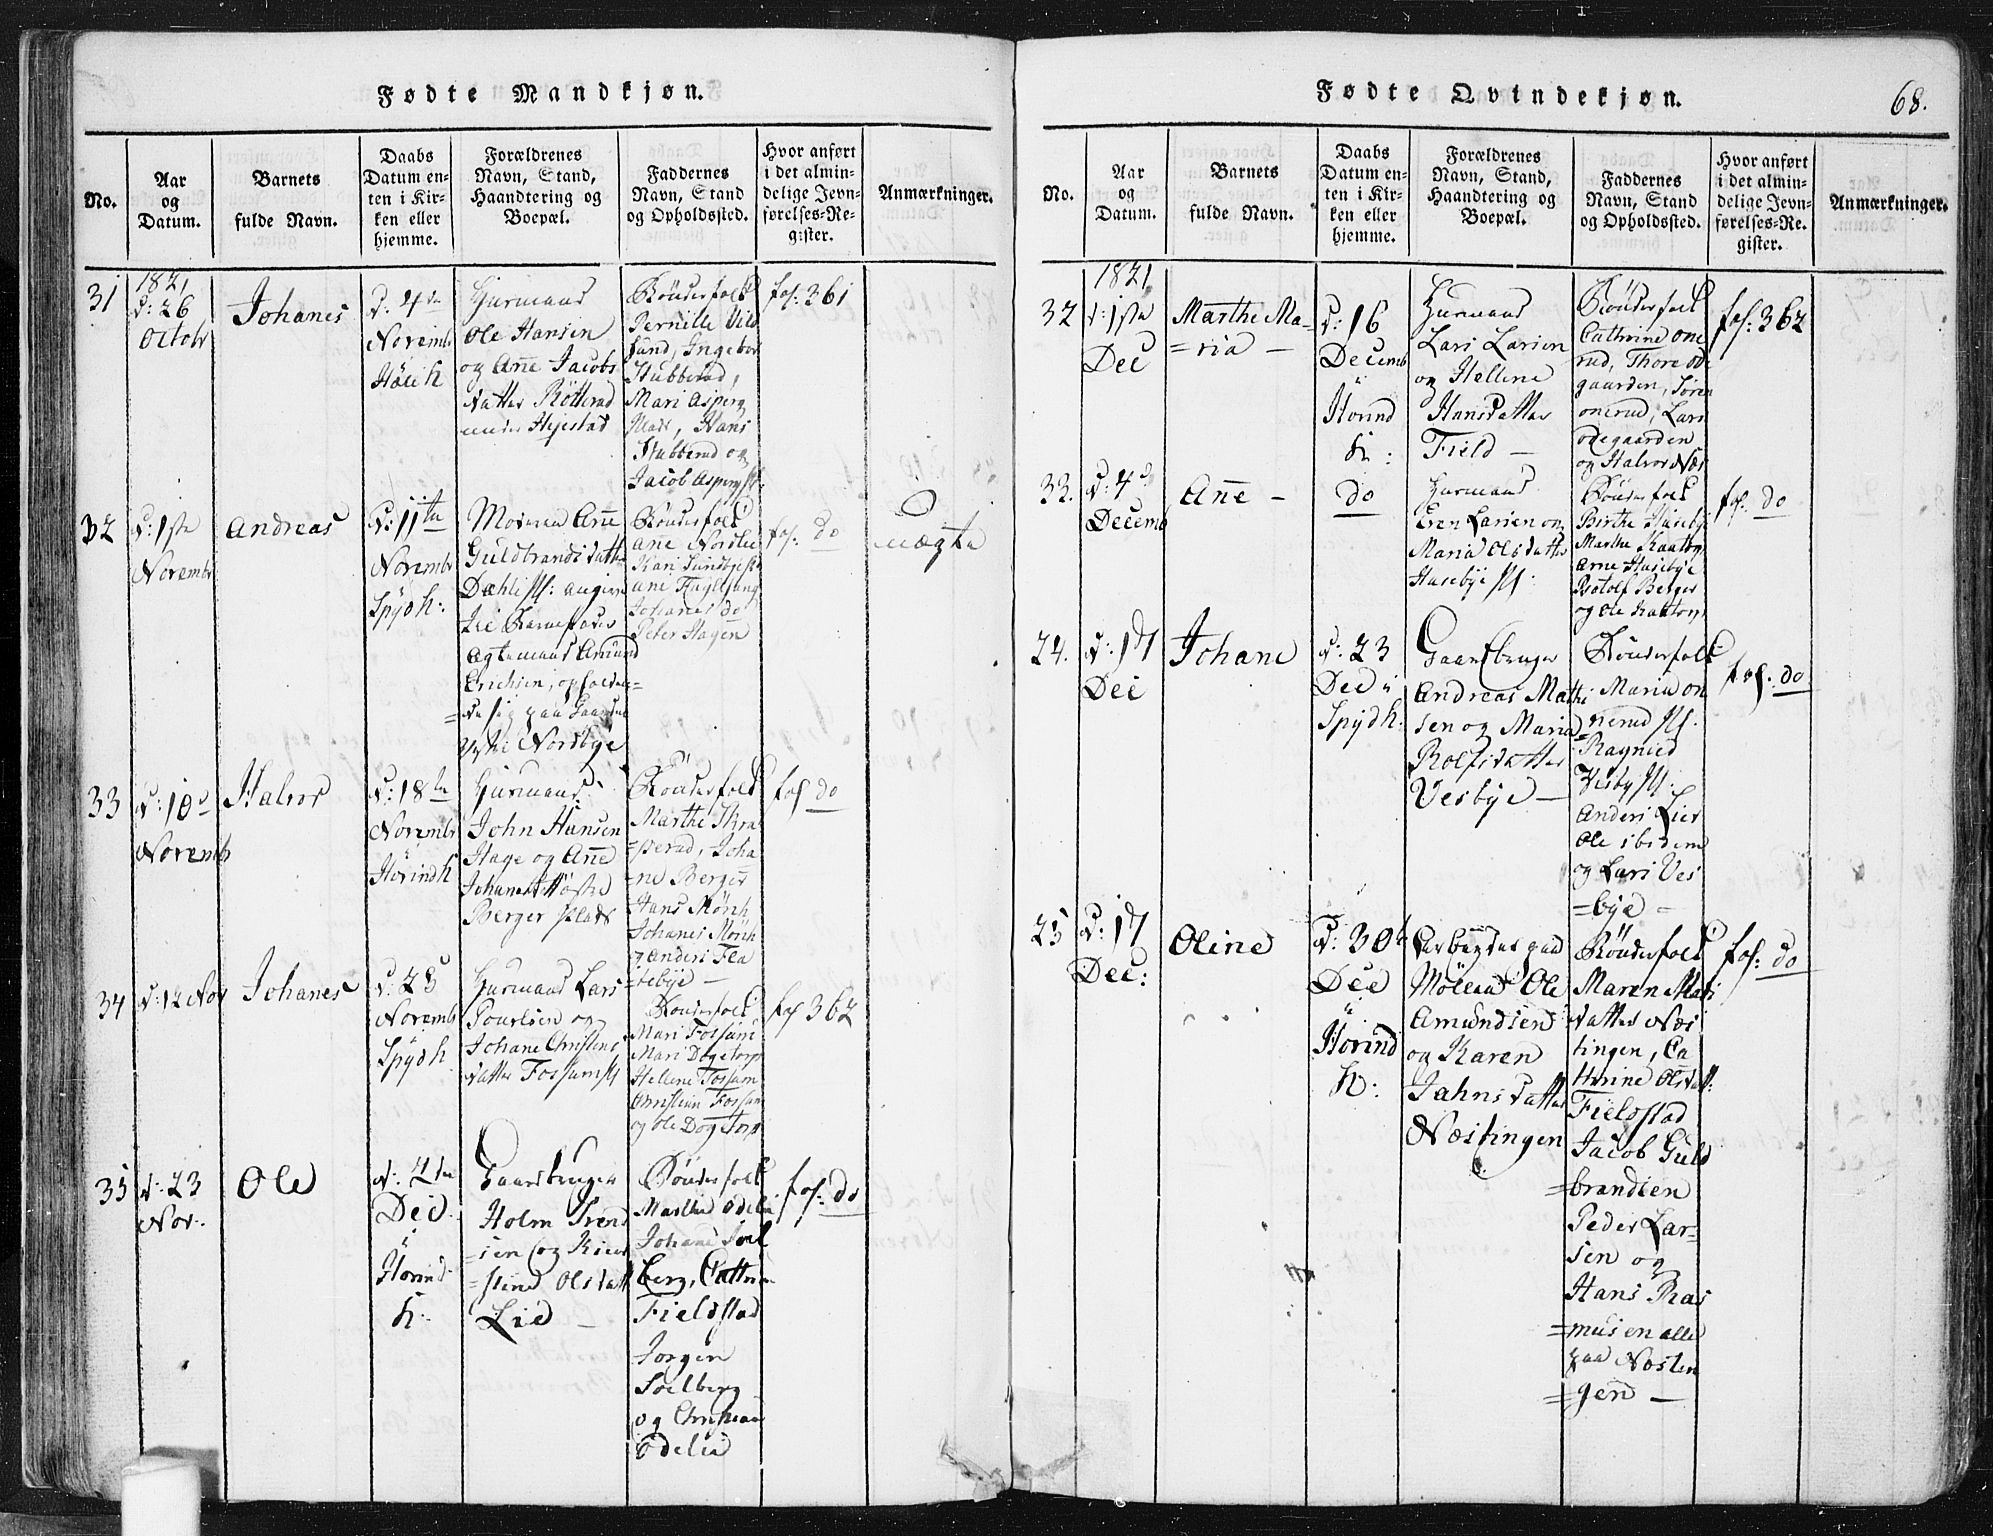 Fødte Mandkjøn.
No.
Aar
og
Datum.
Barnets
fulde Navn.
Daabs
Datum en-
ten i Kir-
ken eller
hjemme.
Forældrenes
Navn, Stand,
Haandtering og
Boepæl.
Faddernes
Navn, Stand
og Opholdssted.
Hvor anført
i det almin-
delige Jevn-
førelses-Re-
gister.
Anmærkninger.
31
1821
d: 26
Octobr
Johanes
d: 4de
Novembr
Huusmand
Ole Hansen
og Añe Jacobs
datter Rötterud
under Hejestad
Bönderfolk
Pernille Vild
sund, Ingebor
Stubberud,
Mari Asperg
Plads, Hans
Stubberud og
Jacob Asperg
fol: 361
32
d: 1ste
Novembr
Andreas
d: 11te
Novembr
Spydk:
Moderen Añe
Guldbrandsdatter
Dæhli
Barnefader
Amund
Erichsen, opholde=
=de sig paa Gaarden
Nordbye
Bönderfolk
Añe Nordlie
Kari
Johanes do
Peter Hagen
fol: do
U
ægte
33
d: 10d
Novembr
Halvor
d: 18de
Novembr
Hovindk
Huusmand
John Hansen
Hage og Añe
Berger plads
Bönderfolk
Marthe Skra
=perud, Joha
=ne Berger
Hans Mönk
Johanes Mönk
og Anders Fla
=debye
fol do
34
d: 12 Nov
Johanes
d: 25
Novembr
Spydk
Huusmand Lars
Povelsen og
Johane Christens
datter Fossum
Bönderfolk
Mari Fossum
Mari Dogetorp
Hellene Fossum
Christian Fossum
og Ole Dogetorp
fol 362
35
d: 23
Nov:
Ole
d: 2den
Dec:
i
Hovind
K:
Gaardbruger
Holm Svend
=sen og Kier
=stine Olsdatt
Lie —
Bönderfolk
Marthe Odelia
Johane Soel
berg, Cathrin
Fieldstad
Jorgen
Soelberg
og Christian
Odelia
fol: do
Fødte Qvindekjøn.
68.
No.
Aar
og
Datum.
Barnets
fulde Navn.
Daabs
Datum en-
ten i Kir-
ken eller
hjemme.
Forældrenes
Navn, Stand,
Haandtering og
Boepæl.
Faddernes
Navn, Stand
og Opholdssted.
Hvor anført
i det almin-
delige Jevn-
førelses-Re-
gister.
Anmærkninger.
32
1821
d: 1ste
Dec
Marthe Ma-
=ria —
d: 16
Decemb
i
Hovind
K:
Huusmand
Lars Larsen
og Hellene
Hansdatter
Field —
Bönderfolk
Cathrine One
rud, Thore Ode
gaarden, Sören
Onerud, Lars
Odegaarden
og Halvor Næs
fol: 362
33.
d: 4d
Decemb
Añe —
do
Huusmand
Even Larsen og
Maria Olsdatter
Husebye
Bönderfolk
Birthe Husebye
Marthe
Arne Husebye
Botolf Berger
og Ole
fol: do
24.
d: 17
Dec
Johane
d: 23
Dec i
Spydk:
Gaardbruger
Andreas Mathi
sen og Maria
Rolfsdatter
Vesbye —
Bönderfolk
Maria On
nerud
Ragnild
Vesby
Anders Lier
Ole ibidem
og Lars Ves
=bye —
fol: do
25
d: 17
Dec:
Oline
d: 30t
Dec
i
Hovind
K:
Arbeyder paa
Möllen Ole
Amundsen
og Karen
Jahnsdatter
Næstingen
Bönderfolk
Maren Mads
datter Næs
tingen, Ca
thrine Olsdatt:
Fieldstad
Jacob Guld
=brandsen
Peder Lar=
sen og
Hans Ras
=musen alle
paa Næsten
=gen —
fol: do